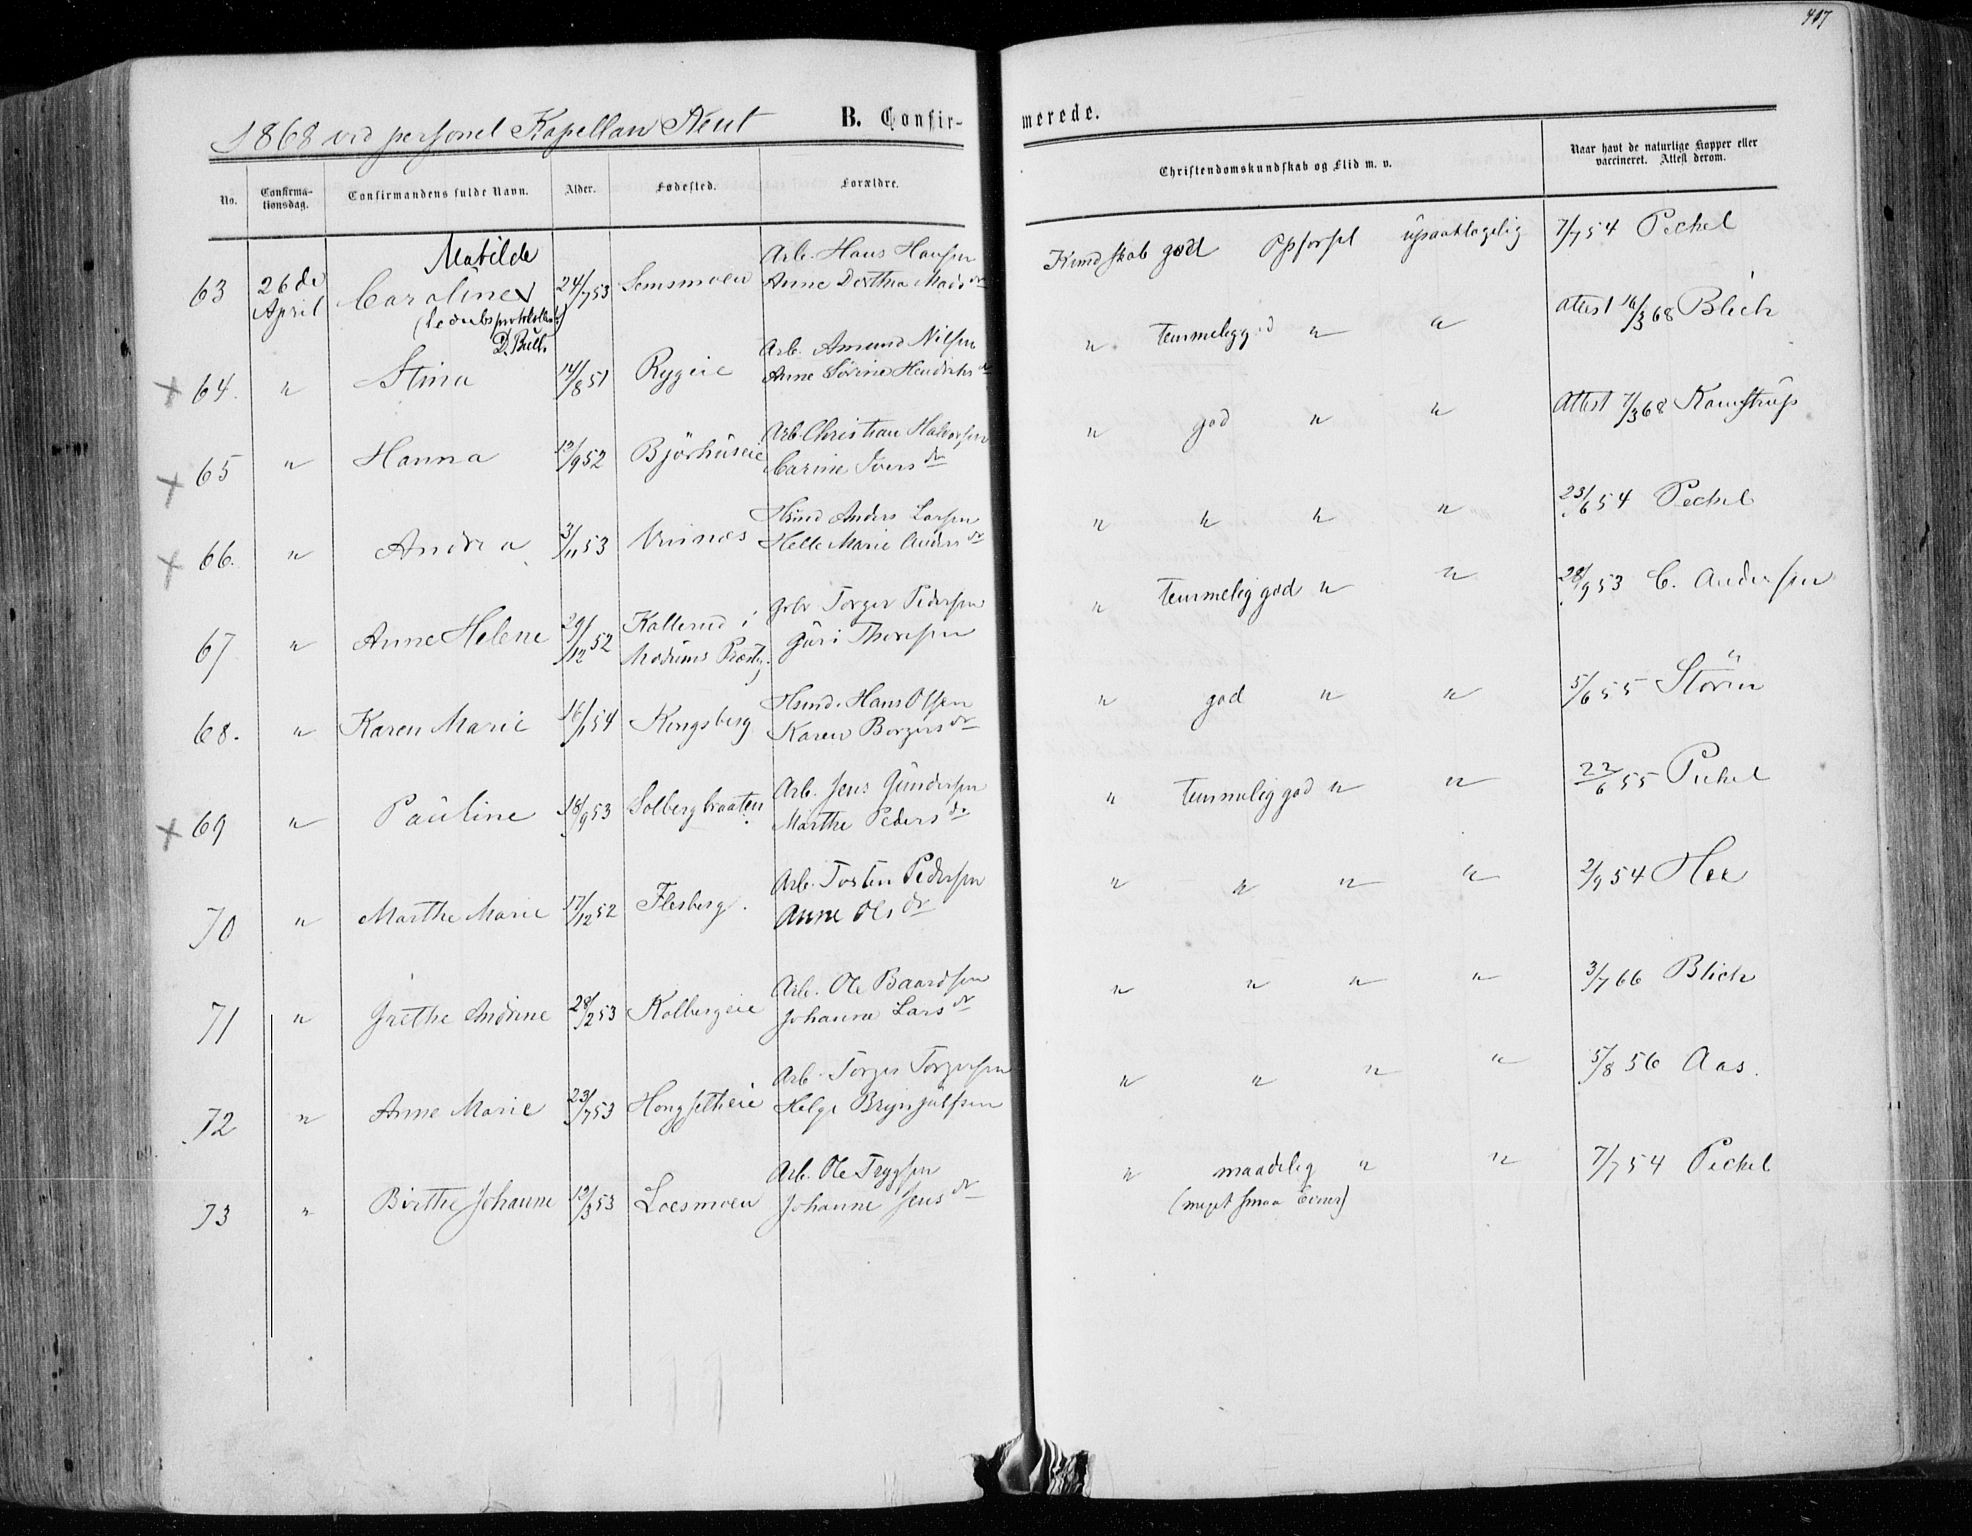 407
1868 ved personel Kapellan
B. Confir-
merede.
No. Confirma-tionsdag. Confirmandens fulde Navn. Alder. Fødested. Forældre. Christendomskundskab og Flid m. v. Naar havt de naturlige Kopper eller vaccineret. Attest derom.
Matilde Arb. Hans Hansen
63 26de April Caroline 24/7 53 Semsmoen Anne Dorthea Mads dr Kundskab god Opførsel upaaklagelig 7/7 54 Pechel
Arb. Amund Nilsen
64. " Stina 14/8 51 Rygeie Anne Sørine Hendriks dr " temmelig god " " Attest 16/3 68 Blich
Arb. Christian Halvorsen
65 " Hanna 12/9 52 Bjørhuseie Carine Ivers dr " god " " Attest 7/3 68 Kamstrup
Hsmd Anders Larsen
66. " Andrea 3/11 53 Helle Marie Anders dr " " " " 23/6 54 Pechel
Torger Pedersen
67 " Anne Helene 29/12 52 Kallerud i Modums Præstgj. Guri Thoresen " temmelig god " " 28/9 53 C. Andersen
Hsmd. Hans Olsen
68. " Karen Marie 16/1 54 Kongsberg Karen Borgers dr " god " " 5/6 55 Stören
Arb. Jens Gundersen
69 " Pauline 18/9 53 Solbergbraaten Marthe Peders dr " temmelig god " " 22/6 55 Pechel
Arb. Tosten Pedersen
70 " Marthe Marie 17/12 52 Flesberg. Anne Ols dr " " " " 2/9 54 Hee
Arb. Ole Baardsen
71 " Grethe Andrine 28/2 53 Kolbergeie Johanne Lars dr " " " " 3/7 66 Blich
Arb. Torger Torgersen
72 " Anne Marie 23/7 53 Helge Brynjulfsen " " " " 5/8 56 Aas.
Arb. Ole Trygsen
73 " Birthe Johanne 12/3 53 Loesmoen Johanne Jens dr " maadelig " " 7/7 54 Pechel
(meget smaa Evner)